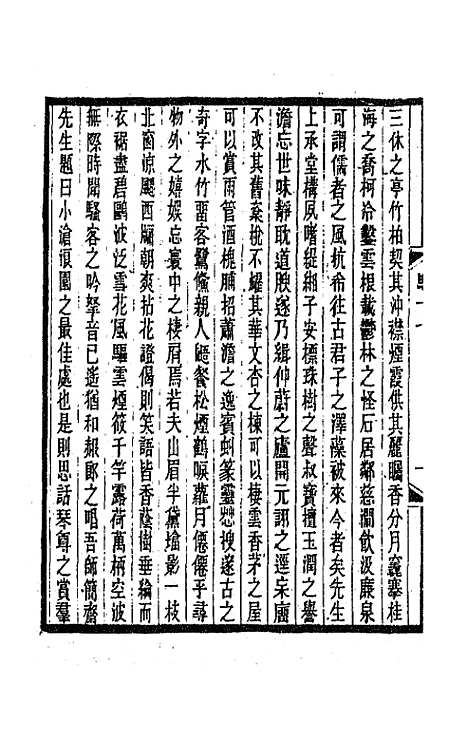 三休之亭竹柏契其沖襟煙霞供其麗矚香分月窟搴桂
海之喬柯冷鑿雲根載鬱林之怪石居鄰慈澗飲汲廉泉
可謂儒者之風杭希往古君子之澤藻被來今者矣先生
上承堂構夙嗜緹緗子安標珠樹之聲叔寶擅玉潤之譽
澹忘世味靜耽道腴遂乃緝仲蔚之廬開元詡之逕宋廇
不改其舊桼梲不耀其華文杏之棟可以棲雲香茅之屋
可以賞雨管酒槐脯招蕭澹之逸賓蚪篆靈
搜遂古之
奇字水竹罶客鷺鯈親人飇餐松煙鶴唳蘿月僊僊乎尋
物外之嬉娱忘寰中之棲屑焉若夫山眉半黛墖影一枝
北窗涼颸西闢朝爽拈花證偈則笑語皆香蔭樹垂綸而
衣裾盡碧鷗波泛雪花風驅雲煙筱千竿露荷萬柄空波
無際時聞騷客之吟拏音已遙猶和榜郞之唱吾師簡齋
先生題曰小滄浪園之最佳處也是則思話琴尊之賞羣